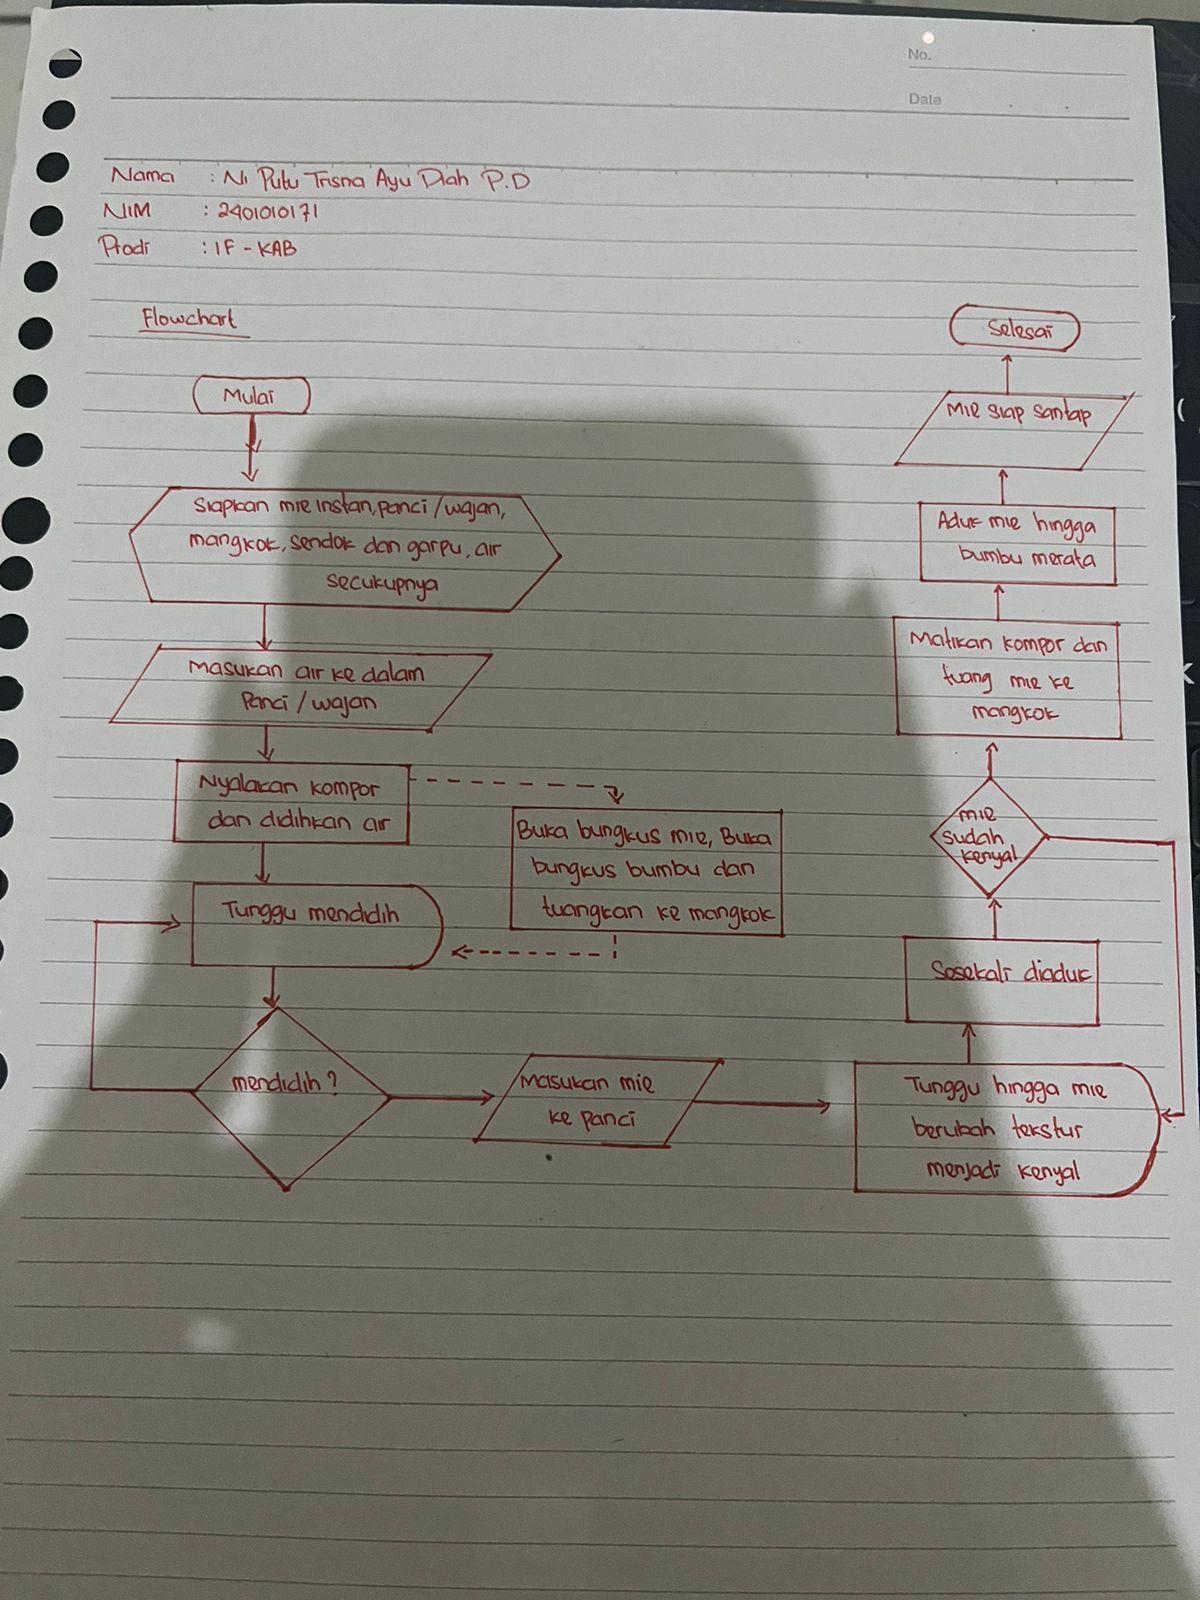 No.
Date
Nama : Ni Putu Trisna Ayu Diah P.D
NIM : 2401010171
Prodi : IF - KAB
Flowchart
Mulai
Siapkan mie instan, panci / wajan,
mangkok, sendok dan garpu, air
secukupnya
Masukan air ke dalam
Panci / wajan
Nyalakan kompor
dan didihkan air
Buka bungkus mie, Buka
bungkus bumbu dan
tuangkan ke mangkok
Tunggu mendidih
mendidih ?
Masukan mie
ke panci
Tunggu hingga mie
berubah tekstur
menjadi kenyal
Sesekali diaduk
mie
sudah
kenyal
Matikan kompor dan
tuang mie ke
mangkok
Aduk mie hingga
bumbu merata
Mie siap santap
Selesai